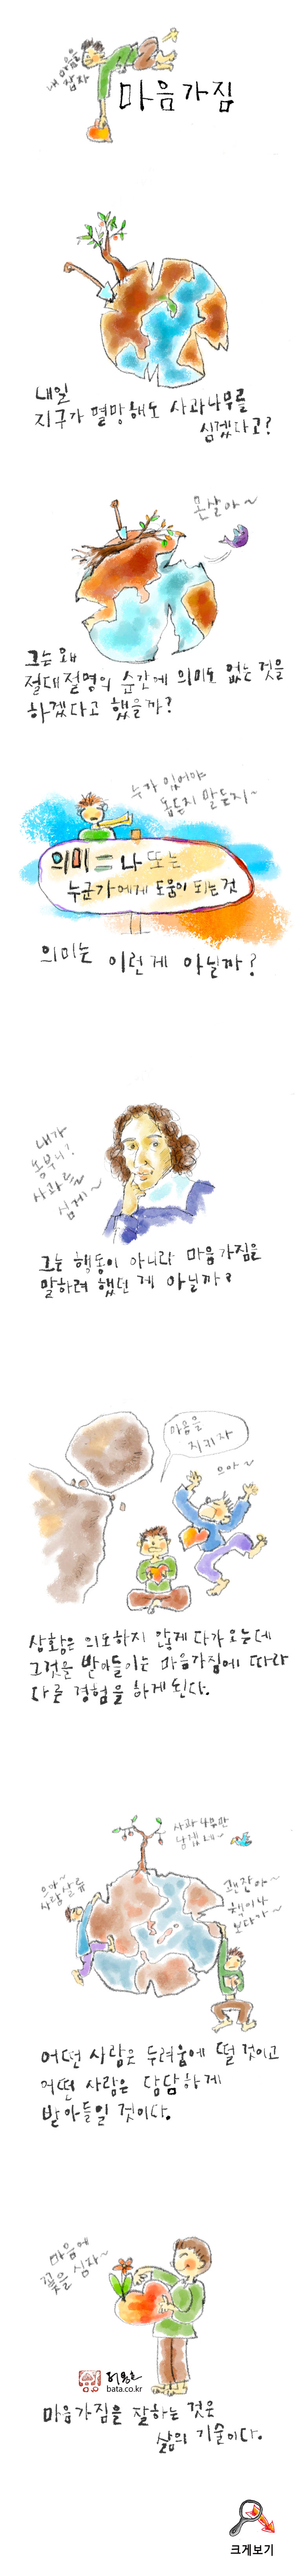 내 마음을
잡자
마음가짐
내일
지구가 멸망해도 사과나무를
심겠다고?
못살아~
그는 왜
절대절명의 순간에 의미도 없는 것을
하겠다고 했을까?
누가 있어야
돕든지 말든지~
의미 = 나 또는
누군가에게 도움이 되는 것
의미는 이런 게 아닐까?
내가
농부니?
사과를
심게~
그는 행동이 아니라 마음가짐을
말하려 했던 게 아닐까?
마음을
지키자
으아~
상황은 의도하지 않게 다가오는데
그것을 받아들이는 마음가짐에 따라
다른 경험을 하게 된다.
사과나무만
남겠네~
으아~
사람살류
괜찮아~
책이나
보다가~
어떤 사람은 두려움에 떨 것이고
어떤 사람은 담담하게
받아들일 것이다.
마음에
꽃을 심자~
bata.co.kr
마음가짐을 잘하는 것은
삶의 기술이다.
크게보기